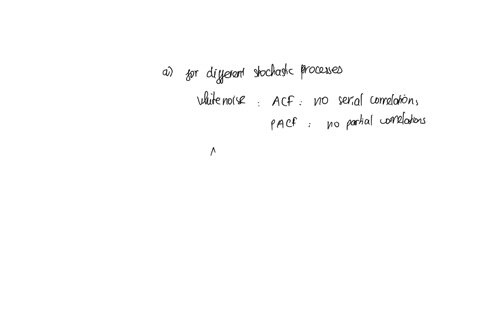 a) for different stochastic processes
white noise : ACF : no serial correlations
PACF : no partial correlations